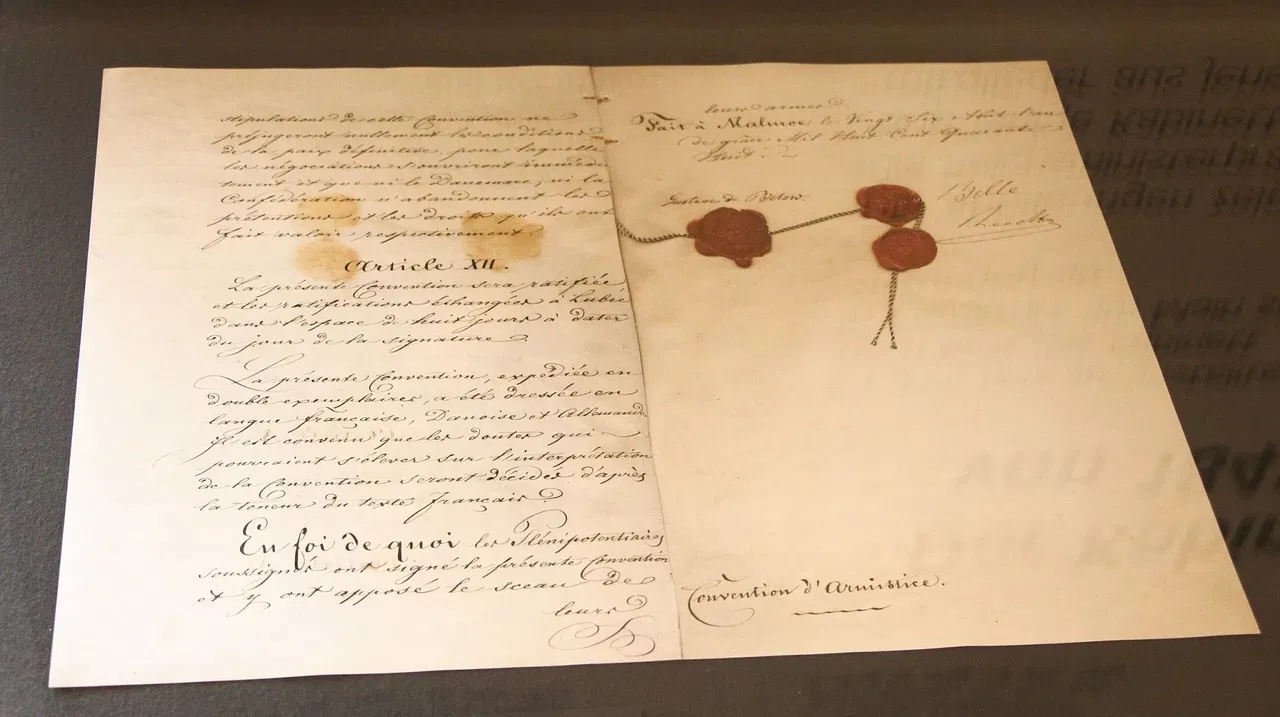 stipulations de cette Convention ne
préjugeront nullement les conditions
de la paix définitive, pour laquelle
les négociations s'ouvriront immédia
tement et que ni le Danemarc, ni la
Confédération n'abandonnent les
prétentions et les droits qu'ils ont
fait valoir respectivement
Article XII.
La présente Convention sera ratifiée
et les ratifications échangées à Lubec
dans l'espace de huit jours à dater
du jour de la signature.
La présente Convention, expédiée en
double exemplaires, a été dressée en
langue française, Danoise et Allemande.
Il est convenu que les doutes qui
pourraient s'élever sur l'interprétation
de la Convention seront décidés d'après
la teneur du texte français.
En foi de quoi les Plénipotentiaires
soussignés ont signé la présente Convention
et y ont apposé le sceau de
leurs
leurs armes.
Fait à Malmoe le Vingt Six Août l'an
de grâce Mil Huit Cent Quarante
Huit.
Gustave de Below.
Bille
Reedtz
Convention d'Armistice.